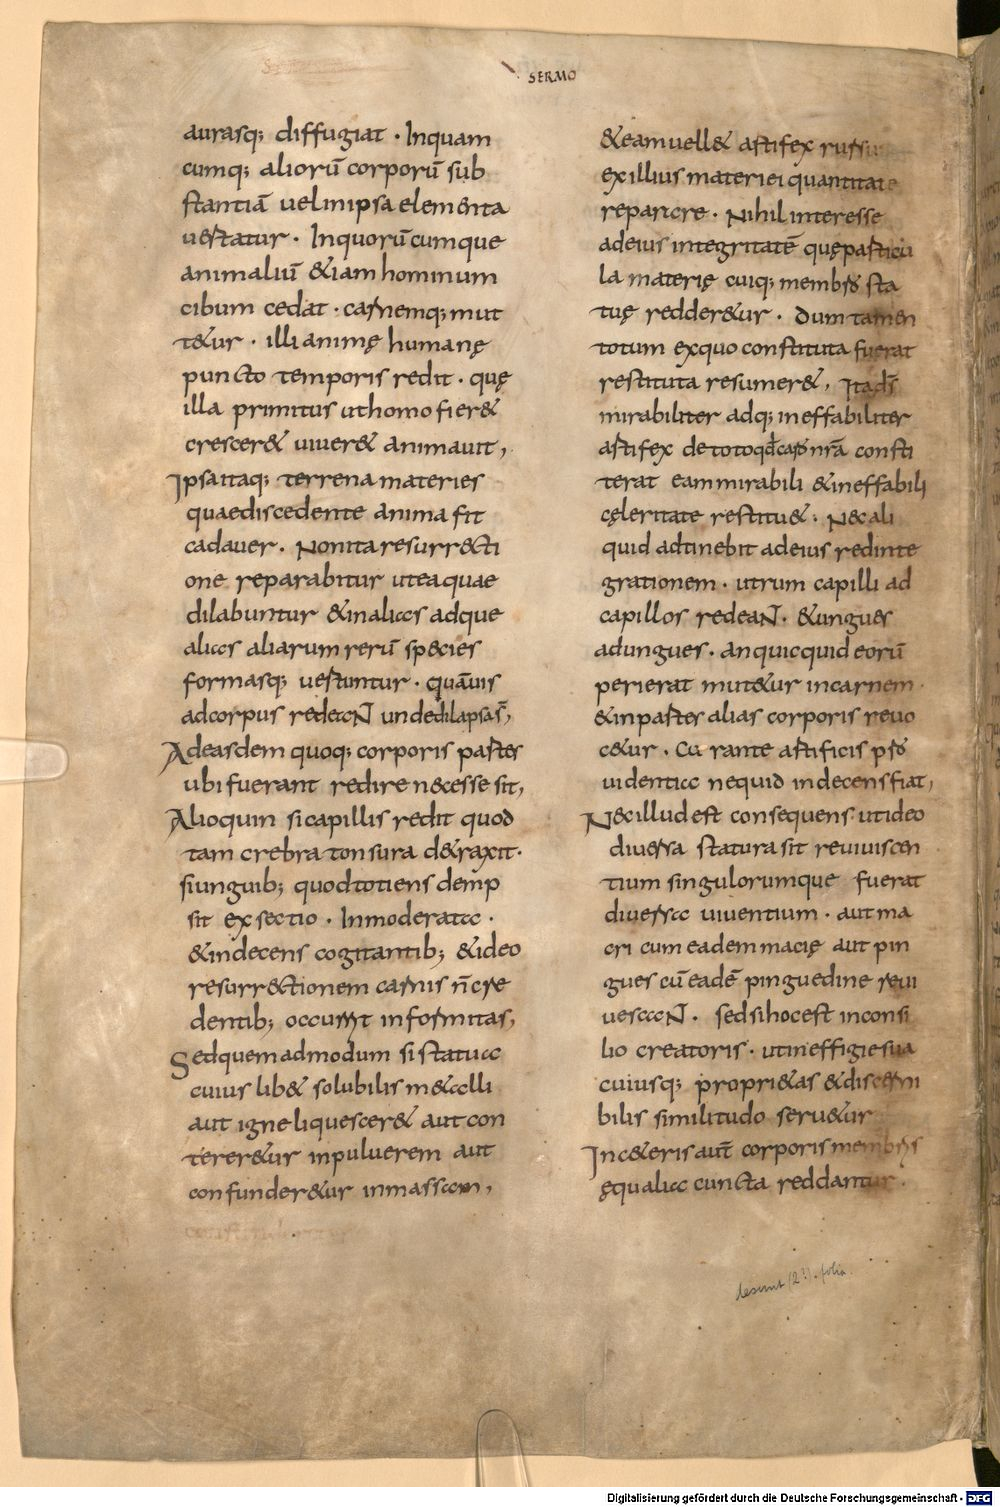 SERMO
aurasq; diffugiat · Inquam
cumq; aliorū corporū sub
stantiā uelinipsa elementa
uertatur · Inquorūcumque
animaliū &iam hominum
cibum cedat · carnemq; mut
t&ur · illi animę humanę
puncto temporis redit · quę
illa primitus uthomo fier&
crescer& uiuer& animauit,
Ipsa itaq; terrena materies
quaediscedente anima fit
cadauer · Nonita resurrecti
one reparabitur utea quae
dilabuntur &inalias adque
alias aliarum rerū species
formasq; uertuntur · quāuis
adcorpus redeaN unde dilapsa s̄,
Adeasdem quoq; corporis partes
ubi fuerant redire necesse sit,
Alioquin si capillis redit quod
tam crebra tonsura d&raxit ·
siunguib; quodtotiens demp
sit exsectio · Inmoderata ·
&indecens cogitantib; &ideo
resurrectionem carnis n̄ cre
dentib; occurrit informitas,
Sedquemadmodum si statua
cuius lib& solubilis m&alli
aut igne liquescer& aut con
terer&ur inpuluerem aut
confunder&ur inmassam,
&eam uell& artifex rursu
exillius materiei quantitate
reparare · Nihil interesse
adeius integritatē quęparticu
la materię cuiq; membro sta
tuę redder&ur · dum tamen
totum exquo constituta fuerat
restituta resumer&, Ita dš
mirabiliter adq; ineffabiliter
artifex detoto qđ caro nrā consti
terat eam mirabili &ineffabili
cęleritate restitu& · Nec ali
quid adtinebit adeius redinte
grationem · utrum capilli ad
capillos redeaN · &ungues
adungues · an quicquid eorū
perierat mut&ur incarnem ·
&inpartes alias corporis reuo
c&ur · Cu rante artificis pro
uidentia nequid indecens fiat,
Nec illud est consequens · utideo
diuersa statura sit reuiuiscen
tium singulorumque fuerat
diuersa uiuentium · aut ma
cri cum eadem macię aut pin
gues cū eadē pinguedine reui
uescaN · sed si hoc est inconsi
lio creatoris · utineffigie sua
cuiusq; propri&as &discerni
bilis similitudo seru&ur
Inc&eris aut̄ corporis membris
ęqualia cuncta reddantur ·
desunt (2?) folia.
Digitalisierung gefördert durch die Deutsche Forschungsgemeinschaft - DFG